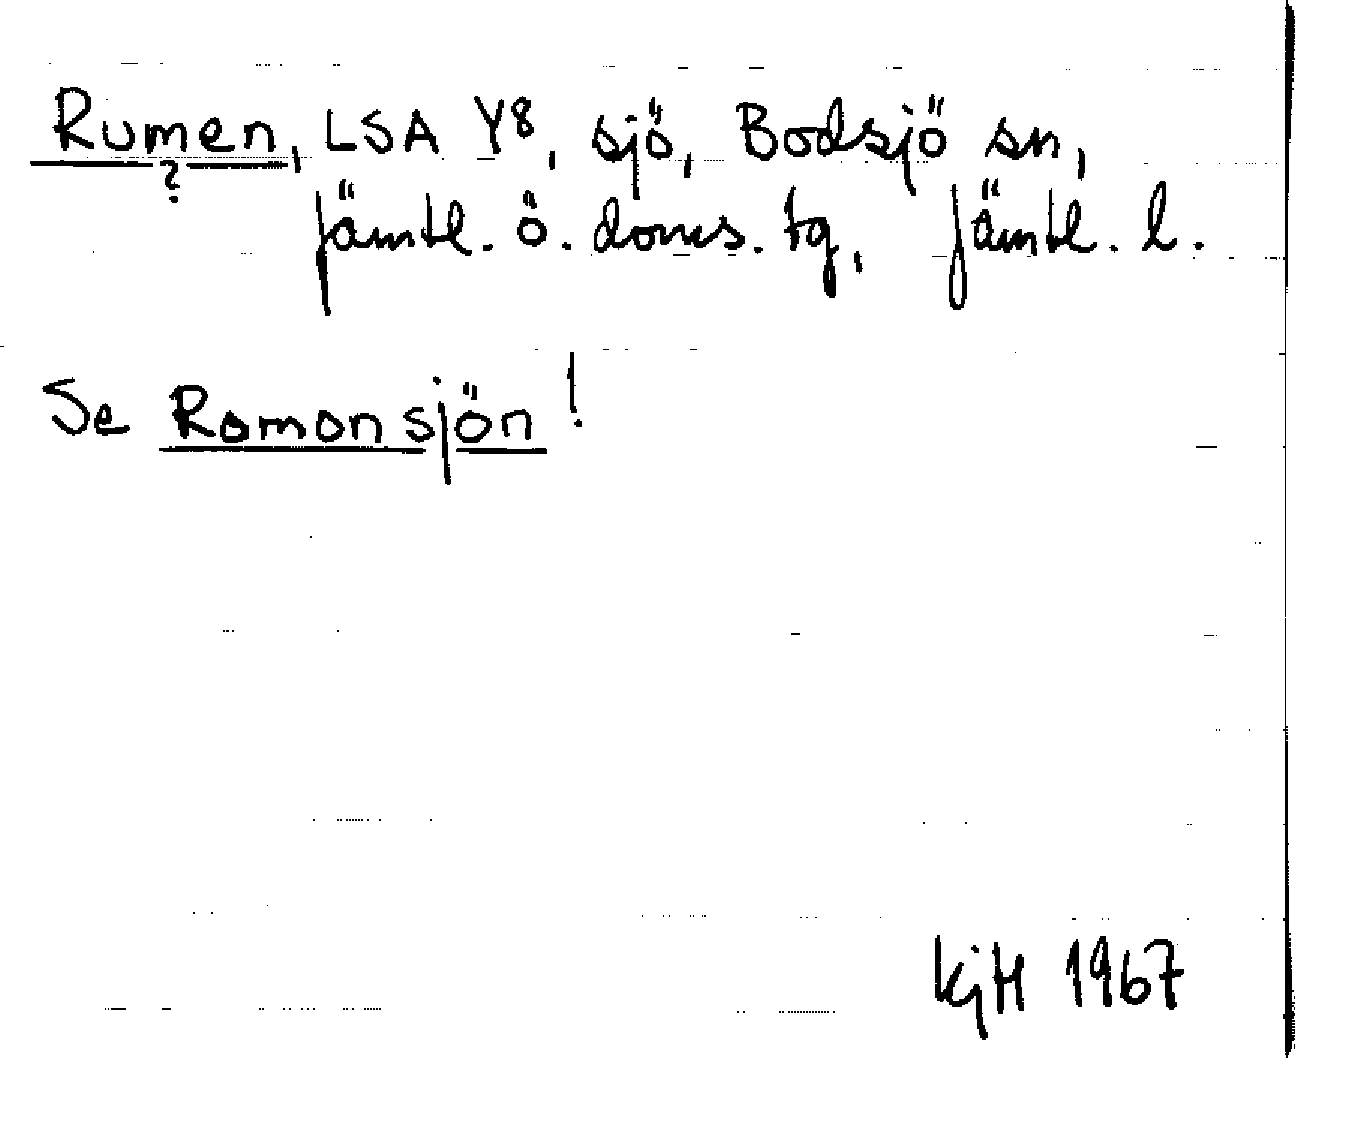 Rumen, LSA Y8, sjö, Bodsjö sn,
?
jämtl. ö. doms. tg, jämtl. l.
Se Romonsjön!
KjH 1967